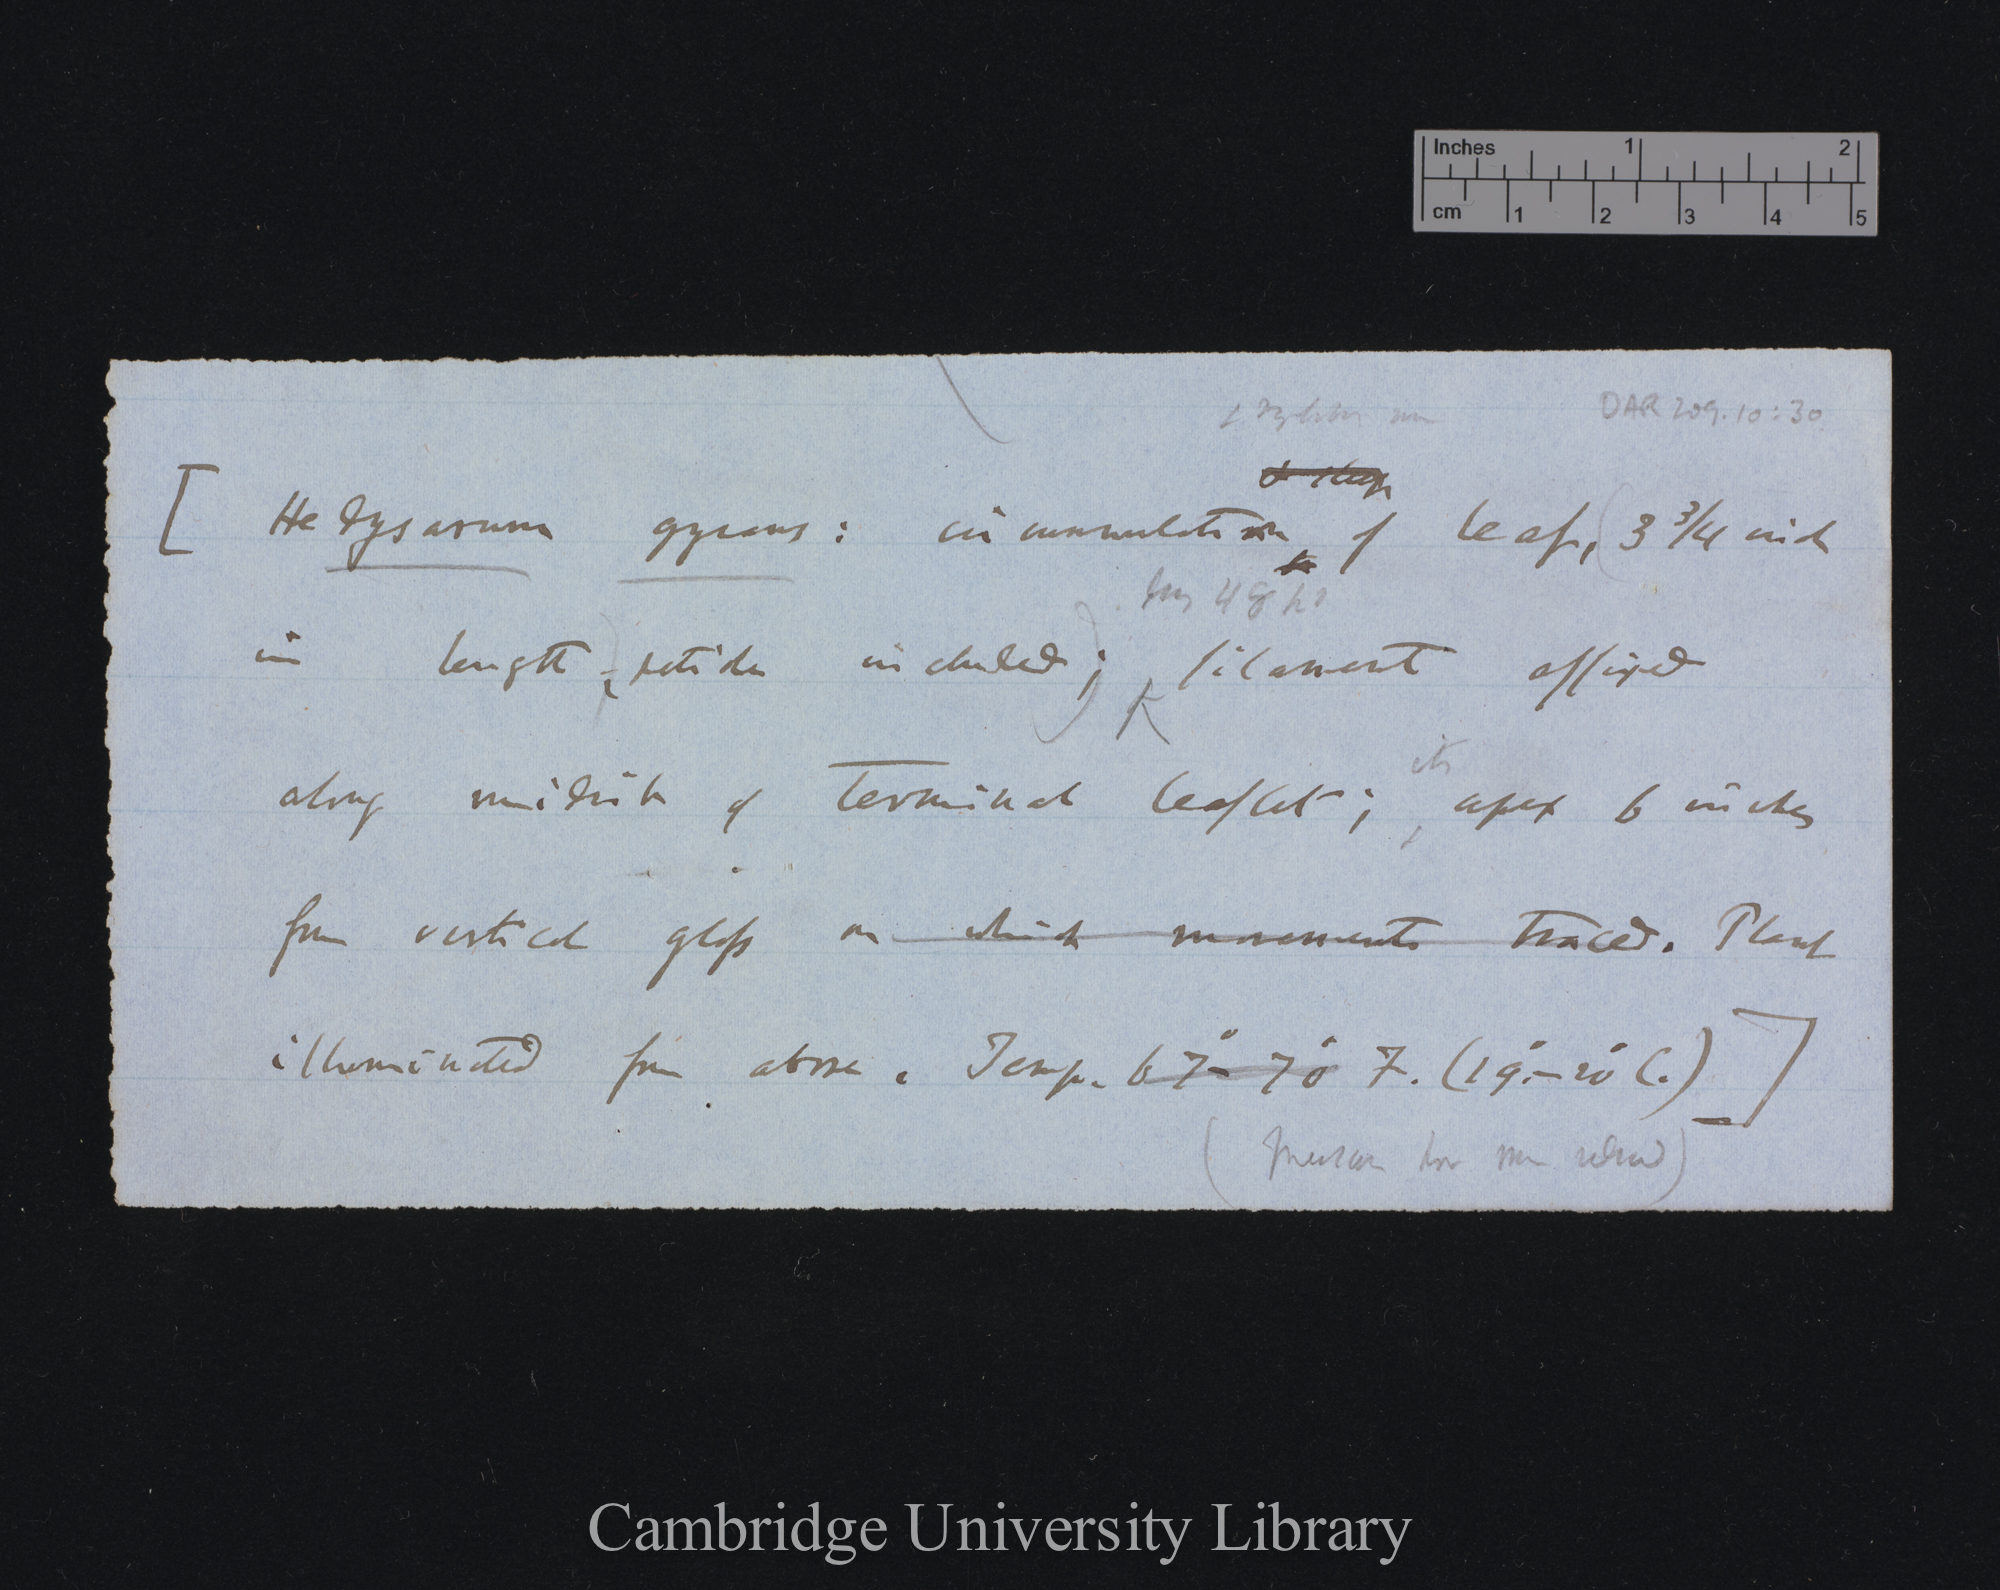 Inches 1 2
cm 1 2 3 4 5
DAR 209.10:30
& sleep
[ Hedysarum gyrans: circumnutation of leaf, (3 3/4 inch
during 48 hs
in length), petiole included); filament affixed
its
along midrib of terminal leaflet; apex 6 inches
from vertical glass on which movements traced. Plant
illuminated from above. Temp. 67°–70° F. (19°.–20° C.) ]
Cambridge University Library